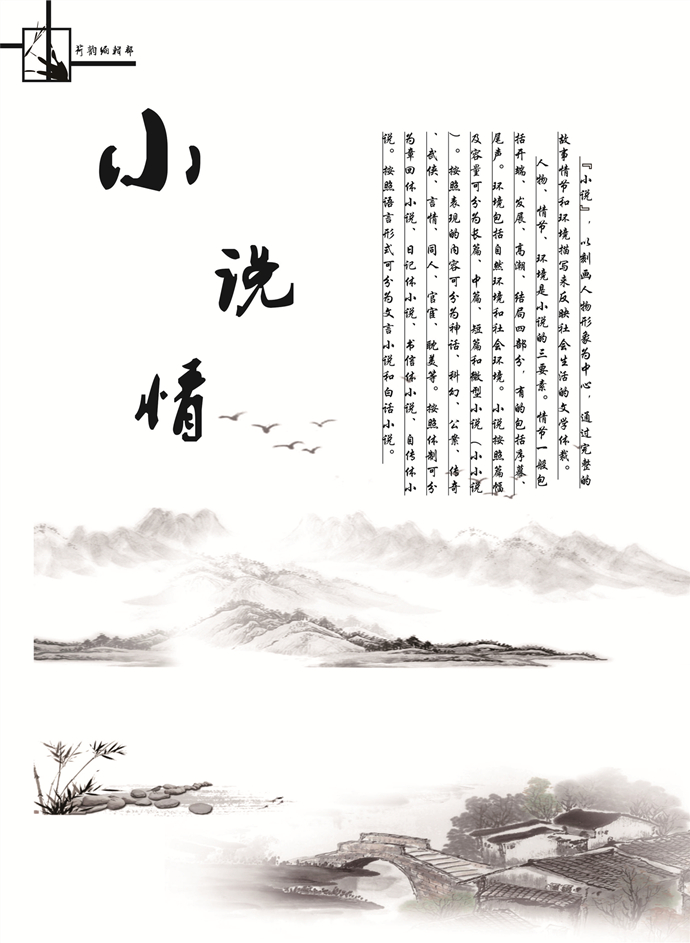 荷韵编辑部
小
说
情
『小说』，以刻画人物形象为中心，通过完整的
故事情节和环境描写来反映社会生活的文学体裁。
人物、情节、环境是小说的三要素。情节一般包
括开端、发展、高潮、结局四部分，有的包括序幕、
尾声。环境包括自然环境和社会环境。小说按照篇幅
及容量可分为长篇、中篇、短篇和微型小说（小小说
）。按照表现的内容可分为神话、科幻、公案、传奇
、武侠、言情、同人、官宦、耽美等。按照体制可分
为章回体小说、日记体小说、书信体小说、自传体小
说。按照语言形式可分为文言小说和白话小说。